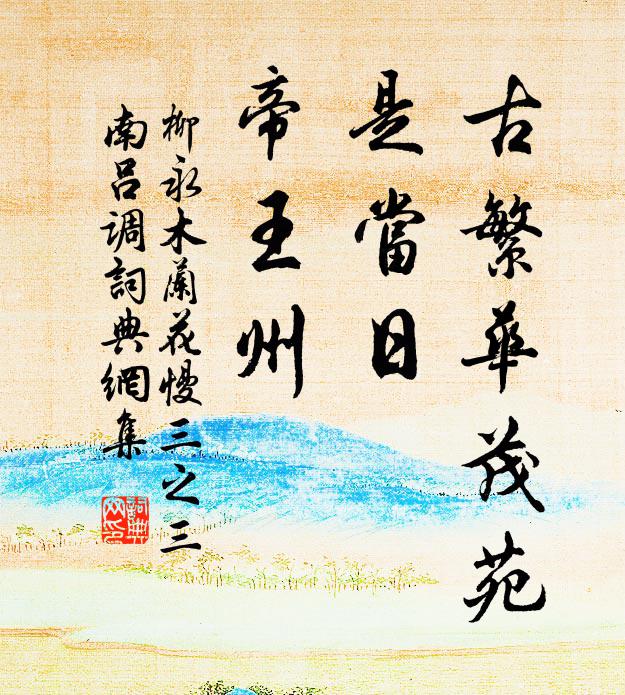 古繁華茂苑
是當日
帝王州
柳永木蘭花慢三之三
南呂调詞典網集
詞典